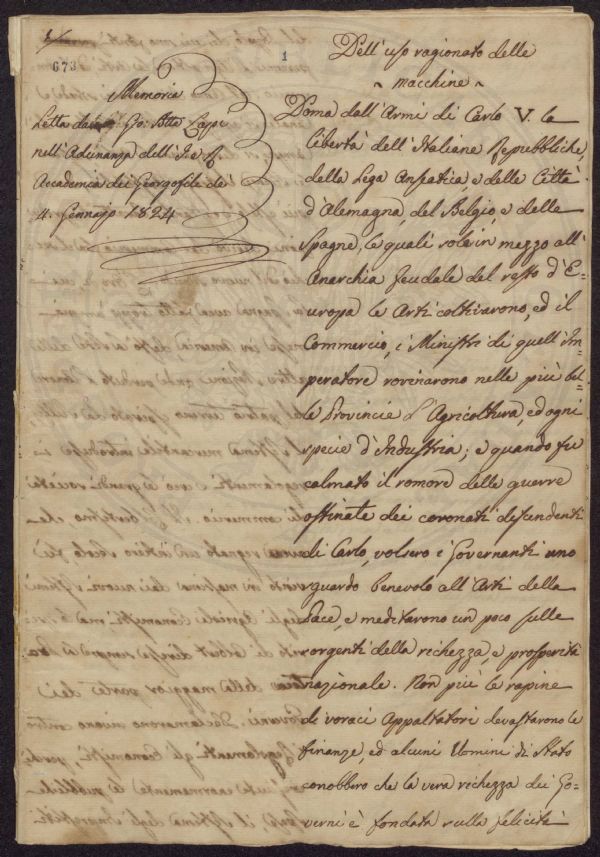 673
1
Memoria
Letta dal Go: Batta Lapi
nell'Adunanza dell'I. e R.
Accademia dei Georgofili de'
4. Gennajo 1824
Dell'uso ragionato delle
macchine
Doma dall'Armi di Carlo V. la
libertà dell'Italiane Repubbliche,
della Lega Anseatica, e delle Città
d'Alemagna, del Belgio, e delle
Spagne, le quali sole in mezzo all'
Anarchia feudale del resto d'E-
uropa le Arti coltivarono, ed il
Commercio, i Ministri di quell'Im-
peratore rovinarono nelle più bel-
le Provincie l'Agricoltura, ed ogni
specie d'Industria; e quando fu
calmato il romore delle guerre
ostinate dei coronati discendenti
di Carlo, volsero i Governanti uno
sguardo benevolo all'Arti della
Pace, e meditarono un poco sulle
sorgenti della richezza, e prosperità
nazionale. Non più le rapine
di voraci Appaltatori devastarono le
finanze, ed alcuni Uomini di Stato
conobbero che la vera richezza dei Go-
verni è fondata sulla felicità